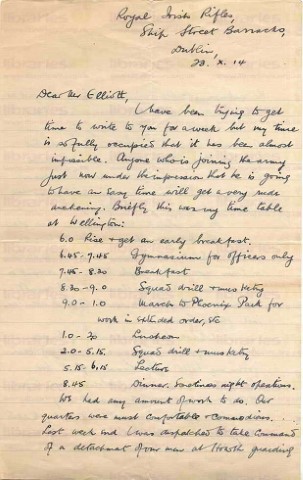 Royal Irish Rifles,
Ship Street Barracks,
Dublin,
28. X. 14
Dear Mr Elliott,
I have been trying to get
time to write to you for a week but my time
is so fully occupied that it has been almost
impossible. Anyone who is joining the army
just now under the impression that he is going
to have an easy time will get a very rude
awakening. Briefly this was my time table
at Wellington:
6.0 Rise & get an early breakfast.
6.45 - 7.45 Gymnasium for officers only
7.45 - 8.30 Breakfast
8.30 - 9.0 Squad drill & musketry
9.0 - 1.0 March to Phoenix Park for
work in extended order, etc
1.0 - 2.0 Luncheon
2.0 - 5.15. Squad drill & musketry
5.15 - 6.15 Lecture
8.45 Dinner. Sometimes night operations.
We had any amount of work to do. Our
quarters were most comfortable & commodious.
Last week end I was dispatched to take command
of a detachment of our men at Howth guarding